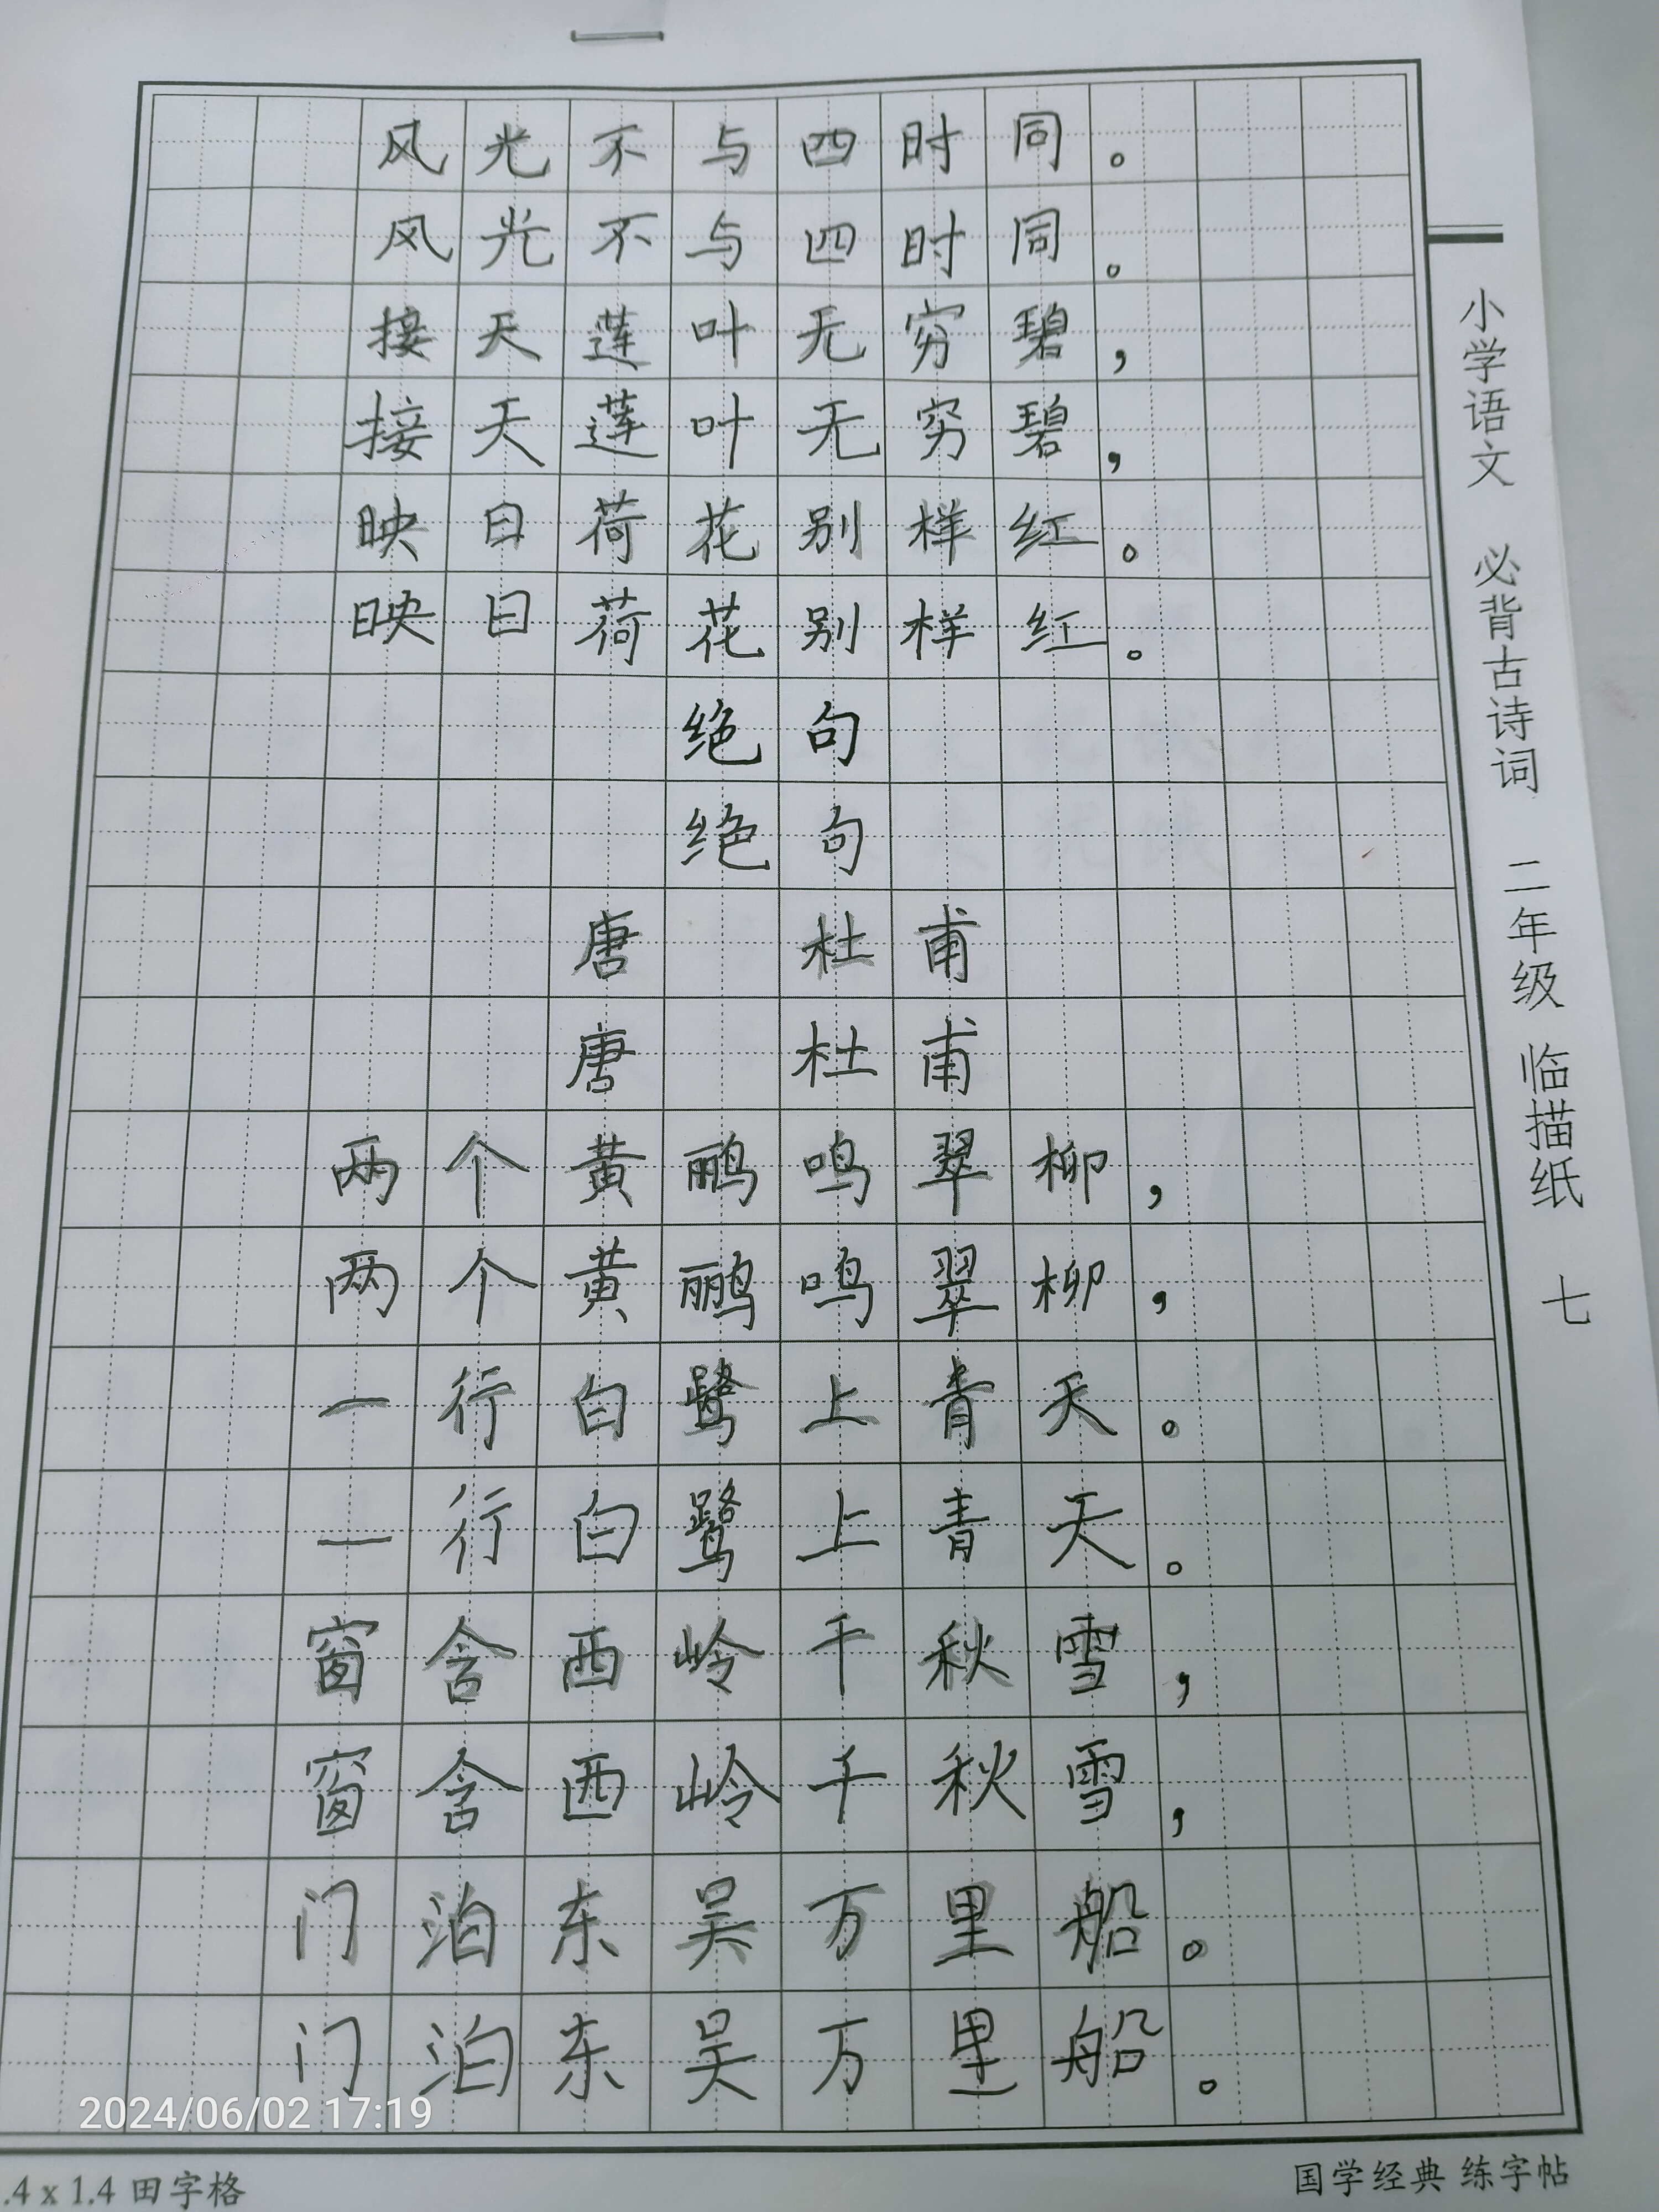 风光不与四时同。
风光不与四时同。
接天莲叶无穷碧，
接天莲叶无穷碧，
映日荷花别样红。
映日荷花别样红。
绝句
绝句
唐 杜甫
唐 杜甫
两个黄鹂鸣翠柳，
两个黄鹂鸣翠柳，
一行白鹭上青天。
一行白鹭上青天。
窗含西岭千秋雪，
窗含西岭千秋雪，
门泊东吴万里船。
门泊东吴万里船。
小学语文 必背古诗词 二年级 临描纸 七
2024/06/02 17:19
.4 x 1.4 田字格
国学经典 练字帖